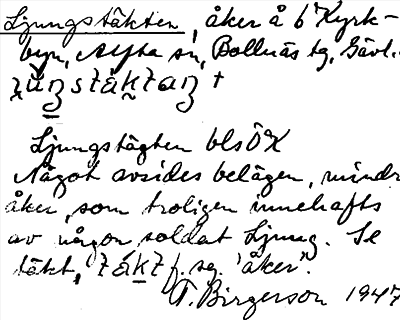 Ljungstäkten, åker å 6 Kyrk-
byn, Alfta sn, Bollnäs tg, Gävl.
Ljungstägten blsÖK
Något avsides belägen, mindr
åker, som troligen innehafts
av någon soldat Ljung. Se
täkt, f. sg. 'åker'.
T. Birgerson 1947